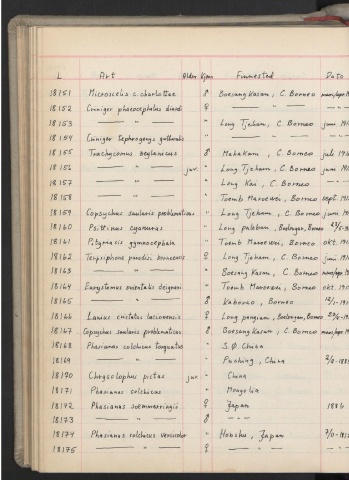 L Art Alder Kjønn Funnested Dato
18151 Microscelis c. charlottae ♂ Boesang Kasan, C. Borneo
18152 Criniger phaeocephalus diardi ♀ — " —
18153 — " — " Long Tjeham, C. Borneo juni
18154 Criniger tephrogenys gutturalis " — " —
18155 Trachycomus zeylanicus ♂ Mahakam, C. Borneo juli
18156 — " — juv. " Long Tjeham, C. Borneo juni
18157 — " — " Long Kai, C. Borneo —
18158 — " — " Toemb Maroewei, Borneo sept.
18159 Copsychus saularis problematicus " Long Tjeham, C. Borneo juni
18160 Psittinus cyanurus " Long paleban, Boelongan, Borneo
18161 Pityriasis gymnocephala " Toemb Maroewei, Borneo okt.
18162 Terpsiphone paradisi borneensis ♀ Long Tjeham, C. Borneo juni
18163 — " — " Boesang Kasan, C. Borneo
18164 Eurystomus orientalis deignani " Toemb Maroewei, Borneo okt.
18165 — " — ♂ Kaborko, Borneo
18166 Lanius cristatus lucionensis ♀ Long pangian, Boelongan, Borneo
18167 Copsychus saularis problematicus ♂ Boesang Kasan, C. Borneo
18168 Phasianus colchicus torquatus " S.Ø. China
18169 — " — " China
18170 Chrysolophus pictus juv. " China
18171 Phasianus colchicus " Mongolia
18172 Phasianus soemmerringii ♀ Japan 1886
18173 — " — ♂ — " —
18174 Phasianus colchicus versicolor " Honshu, Japan
18175 — " — ♀